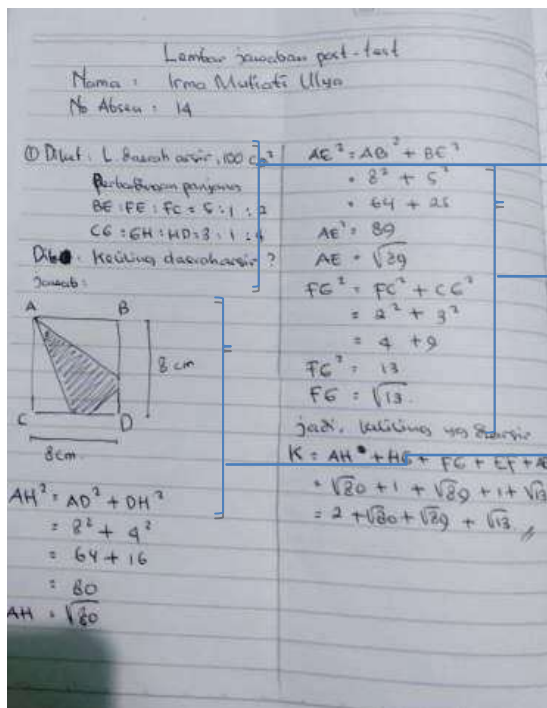 Lembar jawaban post-test
Nama : Irma Mutiati Ulya
No Absen : 14
① Diket : L. daerah arsir, 100 cm²
Perbandingan panjang
BE : FE : FC = 5 : 1 : 2
CG : GH : HD = 3 : 1 : 4
Dit : Keliling daerah arsir ?
Jawab :
A B
8 cm
C D
8cm
AH² = AD² + DH²
= 8² + 4²
= 64 + 16
= 80
AH = √80
AE² = AB² + BE²
= 8² + 5²
= 64 + 25
AE² = 89
AE = √89
FG² = FC² + CG²
= 2² + 3²
= 4 + 9
FG² = 13
FG = √13
jadi, keliling yg diarsir
K = AH + HG + FG + EF + AE
= √80 + 1 + √89 + 1 + √13
= 2 + √80 + √89 + √13 //